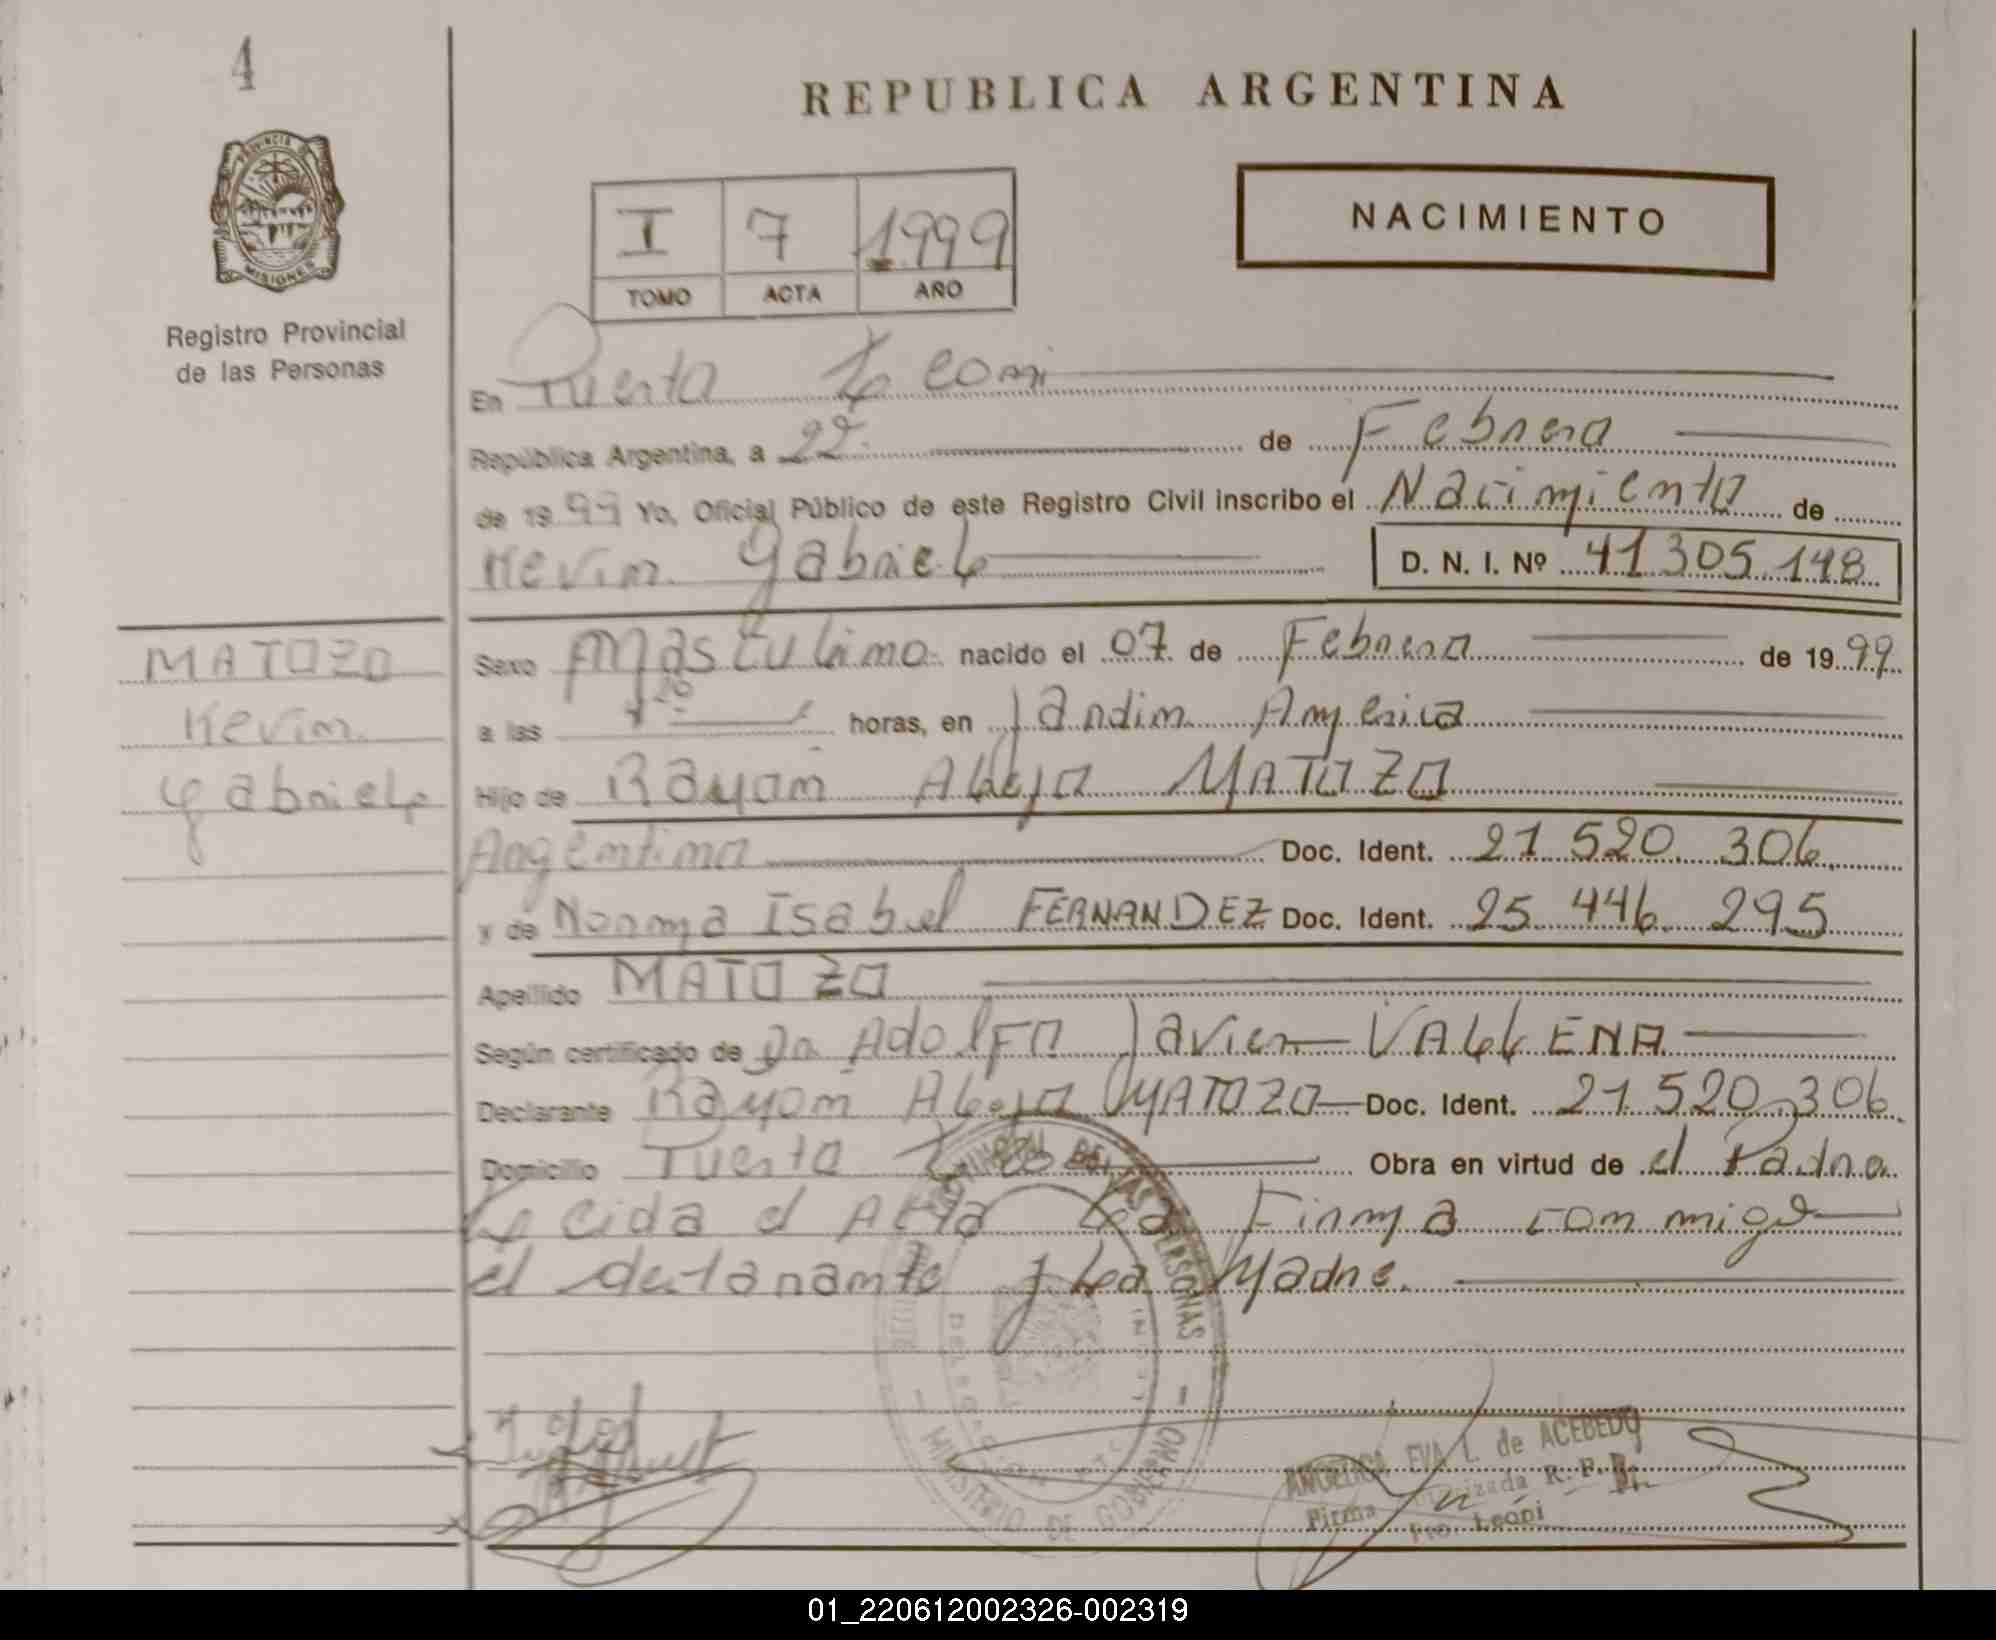 4
REPUBLICA ARGENTINA
PROVINCIA DE
MISIONES
Registro Provincial
de las Personas
I 7 1999
TOMO ACTA AÑO
NACIMIENTO
En Puerto Leoni
República Argentina, a 22 de Febrero
de 1999 Yo, Oficial Público de este Registro Civil inscribo el Nacimiento de
Kevin Gabriel D. N. I. Nº 41305.148
MATOZO
Kevin
Gabriel
Sexo Masculino nacido el 07 de Febrero de 1999
a las horas, en Jardin America
Hijo de Ramon Alejo MATOZO
Argentino Doc. Ident. 21 520 306
y de Norma Isabel FERNANDEZ Doc. Ident. 25 446 295
Apellido MATOZO
Según certificado de Dr Adolfo Javier VALLENA
Declarante Ramon Alejo MATOZO Doc. Ident. 21 520 306
Domicilio Puerto Obra en virtud de el Padre
Leida el Acta La Firma con migo
el declarante y La Madre.
DE LAS PERSONAS
MINISTERIO DE GOBIERNO
ANGELICA EVA L. de ACEBEDO
Firma Autorizada R. P.
Pto. Leoni
01_220612002326-002319